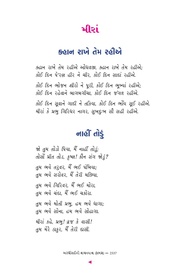 મીરાં
કહાન રાખે તેમ રહીએ
કહાન રાખે તેમ રહીએ ઓધવજી, કહાન રાખે તેમ રહીએ;
કોઈ દિન પે'રણ હીર ને ચીર, કોઈ દિન સાદાં રહીએ.
કોઈ દિન ભોજન શીરો ને પૂરી, કોઈ દિન ભૂખ્યાં રહીએ;
કોઈ દિન રહેવાને બાગબગીચા, કોઈ દિન જંગલ રહીએ.
કોઈ દિન સૂવાને ગાદી ને તકિયા, કોઈ દિન ભોંય સૂઈ રહીએ.
મીરાં કે પ્રભુ ગિરિધર નાગર, સુખદુઃખ સૌ સહી રહીએ.
નાહીં તોડું
જો તુમ તોડો પિયા, મેં નાહીં તોડું;
તોસોં પ્રીત તોડ, કૃષ્ણ! કૌન સંગ જોડું?
તુમ ભયે તરુવર, મેં ભઈ પંખિયા;
તુમ ભયે સરોવર, મેં તેરી મછિયા.
તુમ ભયે ગિરિવર, મેં ભઈ ચારા;
તુમ ભયે ચંદા, મેં ભઈ ચકોરા.
તુમ ભયે મોતી પ્રભુ, હમ ભયે ધાગા;
તુમ ભયે સોના, હમ ભયે સોહાગા.
મીરાં કહે, પ્રભુ! વ્રજ કે વાસી!
તુમ મેરે ઠાકુર, મેં તેરી દાસી.